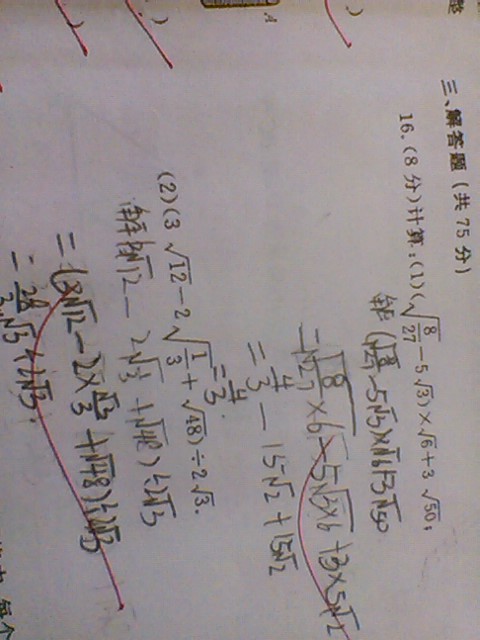 三、解答题(共75分)
16.(8分)计算:(1)(√8/27-5√3)×√6+3√50;
解:(√8/27-5√3)×√6+3√50
=√8/27×6-5√3×6+3×5√2
=4/3-15√2+15√2
=4/3.
(2)(3√12-2√1/3+√48)÷2√3.
解:(3√12-2√1/3+√48)÷2√3
=(3√12-2×√3/3+√48)÷2√3
=28/3√3÷2√3.